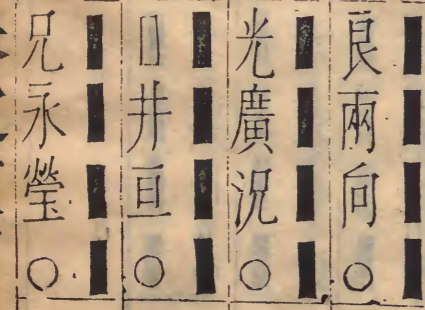 良兩向○
光廣況○
□井亘○
兄永瑩○